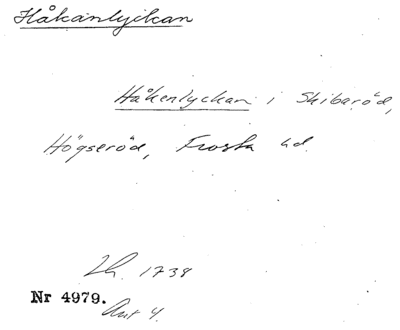 Håkanlyckan
Håkenlyckan i Skibaröd,
Högseröd, Frosta hd.
Lh. 1738
Nr 4979.
Akt 4.